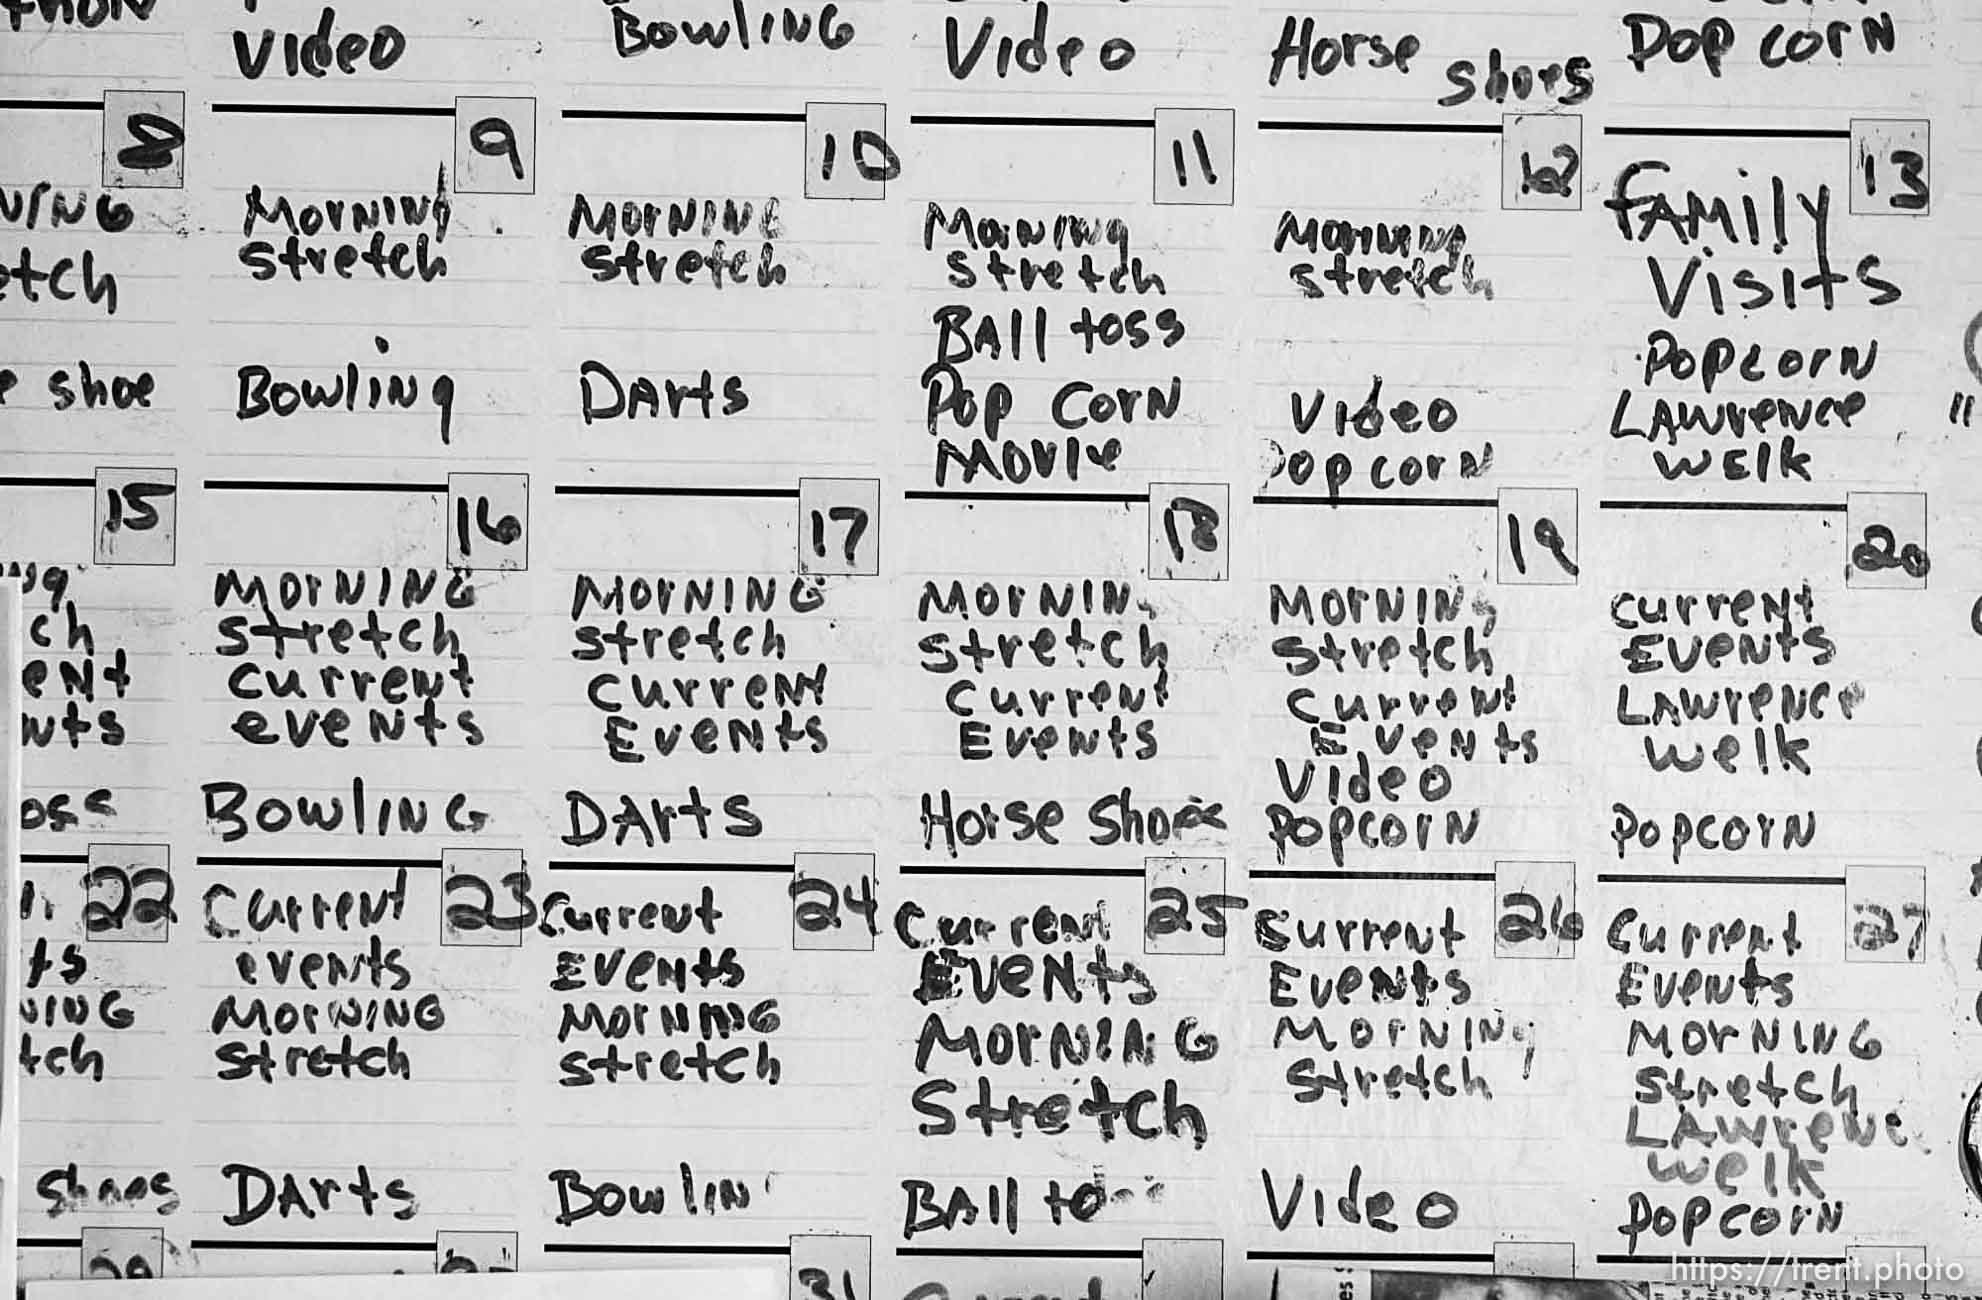 Video
Bowling
Video
Horse shoes
Pop corn
8
NING
etch
e shoe
9
MorNING
stretch
Bowling
10
MorNING
stretch
DArts
11
MorNiNg
stretch
BAll toss
Pop CorN
Movie
12
MorNiNg
stretch
Video
Pop corN
13
FAMily
VisitS
PopcorN
LAWrence
welk
15
ch
eNt
Nts
oss
16
MorNING
stretch
Current
eveNts
BowlING
17
MorNING
stretch
CurreNt
EveNts
DArts
18
MorNIN
stretch
Current
EveNts
Horse Shoes
19
MorNINg
stretch
Current
EveNts
Video
PopcorN
20
CurreNt
EveNts
LAWreNce
welk
PopcorN
22
ts
NING
tch
shoes
23
Current
eveNts
MorNING
stretch
DArts
24
Current
EveNts
MorNiNG
stretch
BowliN
25
Current
EveNts
MorNING
Stretch
BAll to
26
Current
EveNts
MorNINg
stretch
Video
27
Current
EveNts
MorNING
stretch
LAWreNc
welk
PopcorN
31
https://trent.photo